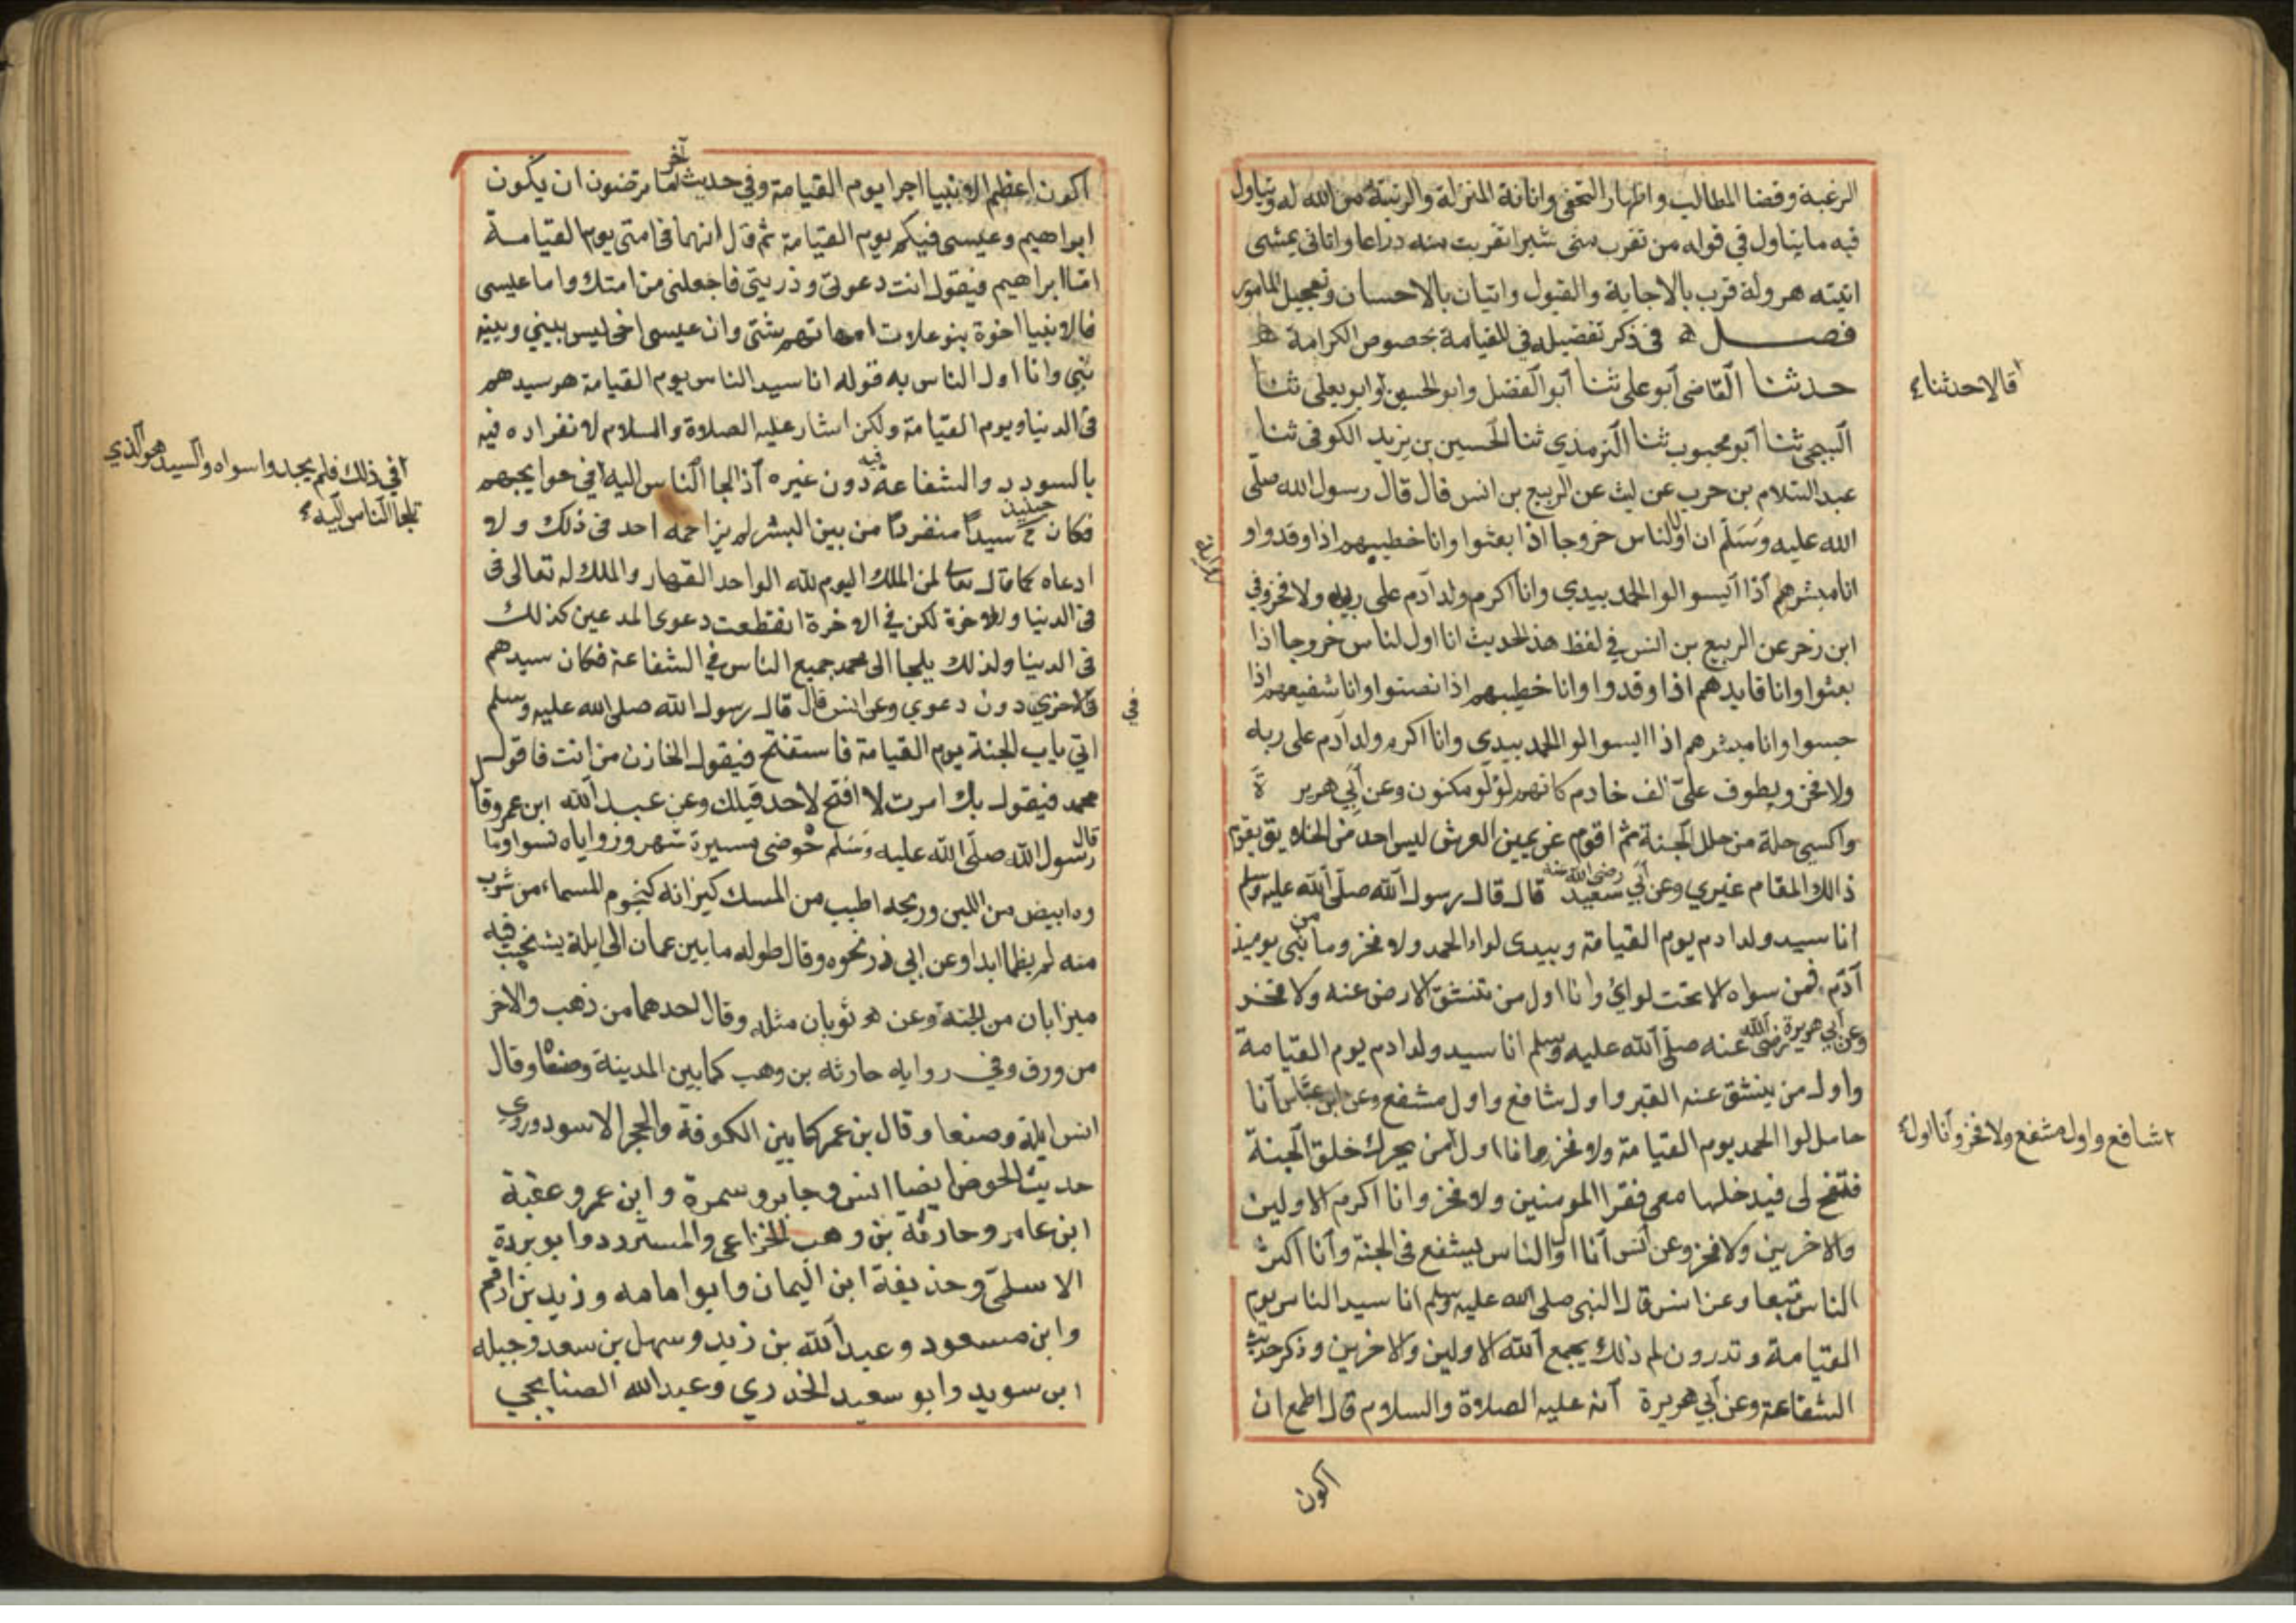 الرغبة وقضا المطالب واظهار التحفي وانانة المنزلة والرتبة من الله له ويتاول
فيه ما يتاول في قوله من تقرب مني شبرا تقربت منه ذراعا واتاني يمشي
اتيته هرولة قرب بالاجابة والقبول واتيان بالاحسان وتعجيل المامول
فصل في ذكر تفضيله في القيامة بخصوص الكرامة
حدثنا القاضي ابو علي ثنا ابو الفضل وابو الحسين وابو يعلي ثنا
قالا حدثنا
البيجي ثنا ابو محبوب ثنا الترمذي ثنا الحسين بن يزيد الكوفي ثنا
عبد السلام بن حرب عن ليث عن الربيع بن انس قال قال رسول الله صلى
الله عليه وسلم ان اول الناس خروجا اذا بعثوا وانا خطيبهم اذا وفدوا و
انا مبشرهم اذا آيسوا لوا الحمد بيدي وانا اكرم ولد آدم على ربه ولا فخر وفي
رواية
ابن زخر عن الربيع بن انس في لفظ هذ الحديث انا اول لناس خروجا اذا
بعثوا وانا قايدهم اذا وفدوا وانا خطيبهم اذا نصتوا وانا شفيعهم اذا
حبسوا وانا مبشرهم اذا ايسوا لوا الحمد بيدي وانا اكرم ولد آدم على ربه
ولا فخر ويطوف علي الف خادم كانهم لؤلو مكنون وعن ابي هريرة
واكسي حلة من حلل الجنة ثم اقوم عن يمين العرش ليس احد من يقوم
ذالك المقام غيري وعن ابي سعيد رضي الله عنه قال قال رسول الله صلى الله عليه وسلم
انا سيد ولد ادم يوم القيامة وبيدي لواء الحمد ولا فخر وما من نبي يوميذ
آدم فمن سواه الا تحت لوائ وانا اول من تنشق الارض عنه ولا فخر
وعن ابي هريرة رضي الله عنه صلى الله عليه وسلم انا سيد ولد ادم يوم القيامة
واول من ينشق عنه القبر واول شافع واول مشفع وعن ابن عباس انا
حامل لوا الحمد يوم القيامة ولا فخر وانا اول من يحرك خلق الجنة
٢ شافع واول مشفع ولا فخر وانا اول
فتفتح لي فيدخلها معي فقرا المومنين ولا فخر وانا اكرم الاولين
والاخرين ولا فخر وعن انس انا اول الناس يشفع في الجنة وانا اكثر
الناس تبعا وعن انس قال النبي صلى الله عليه وسلم انا سيد الناس يوم
القيامة وتدرون لم ذلك يجمع الله الاولين والاخرين وذكر حديث
الشفاعة وعن ابي هريرة انه عليه الصلاة والسلام قال اطمع ان
اكون
اكون اعظم الانبيا اجرا يوم القيامة وفي حديث آخر اما ترضون ان يكون
ابراهيم وعيسى فيكم يوم القيامة ثم قال انهما في امتي يوم القيامة
اما ابراهيم فيقول انت دعوتي وذريتي فاجعلني من امتك واما عيسى
فالانبيا اخوة بنو علات امهاتهم شتى وان عيسى اخي ليس بيني وبينه
نبي وانا اول الناس به قوله انا سيد الناس يوم القيامة هو سيدهم
في الدنيا ويوم القيامة ولكن اشار عليه الصلاة والسلام لانفراده فيه
بالسودد والشفاعة فيه دون غيره اذ لجا الناس اليه في حوايجهم
ا في ذلك فلم يجدوا سواه والسيد هو الذي
تلجا الناس اليه
فكان حينيذ سيدا منفردا من بين البشر لم يزاحمه احد في ذلك ولا
ادعاه كما قال تعالى لمن الملك اليوم لله الواحد القهار والملك له تعالى في
في الدنيا والاخرة لكن في الاخرة انقطعت دعوى المدعين كذلك
في الدينا ولذلك يلجا الى محمد جميع الناس في الشفاعة فكان سيدهم
في الاخري دون دعوي وعن انس قال قال رسول الله صلى الله عليه وسلم
في
اتي باب الجنة يوم القيامة فاستفتح فيقول الخازن من انت فاقول
محمد فيقول بك امرت لا افتح لاحد قبلك وعن عبد الله ابن عمرو قال
قال رسول الله صلى الله عليه وسلم حوضي مسيرة شهر وزواياه سوا وما
وه ابيض من اللبن وريحه اطيب من المسك كيزانه كنجوم السماء من شرب
منه لم يظما ابدا وعن ابي ذر نحوه وقال طوله ما بين عمان الى ايلة يشخب فيه
ميزابان من الجنة وعن ثوبان مثله وقال احدهما من ذهب والاخر
من ورق وفي روايه حارثه بن وهب كما بين المدينة وصنعا وقال
انس ايلة وصنعا وقال بن عمر كما بين الكوفة والحجر الاسود وروي
حديث الحوض ايضا انس وجابر وسمرة وابن عمر وعقبة
ابن عامر وحارثة بن وهب الخزاعي والمستردد وابو بردة
الاسلمي وحذيفة ابن اليمان وابو امامه وزيد بن ارقم
وابن مسعود وعبد الله بن زيد وسهل بن سعد وجبيله
ابن سويد وابو سعيد الخدري وعبد الله الصنابحي